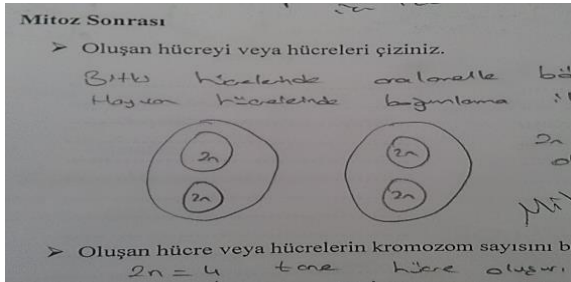 Mitoz Sonrası
➤ Oluşan hücreyi veya hücreleri çiziniz.
Bitki hücrelerinde aralamelle bö
Hayvan hücrelerinde boğumlama
2n 2n 2n
2n 2n
Mi
➤ Oluşan hücre veya hücrelerin kromozom sayısını b
2n = 4 tane hücre oluşur.